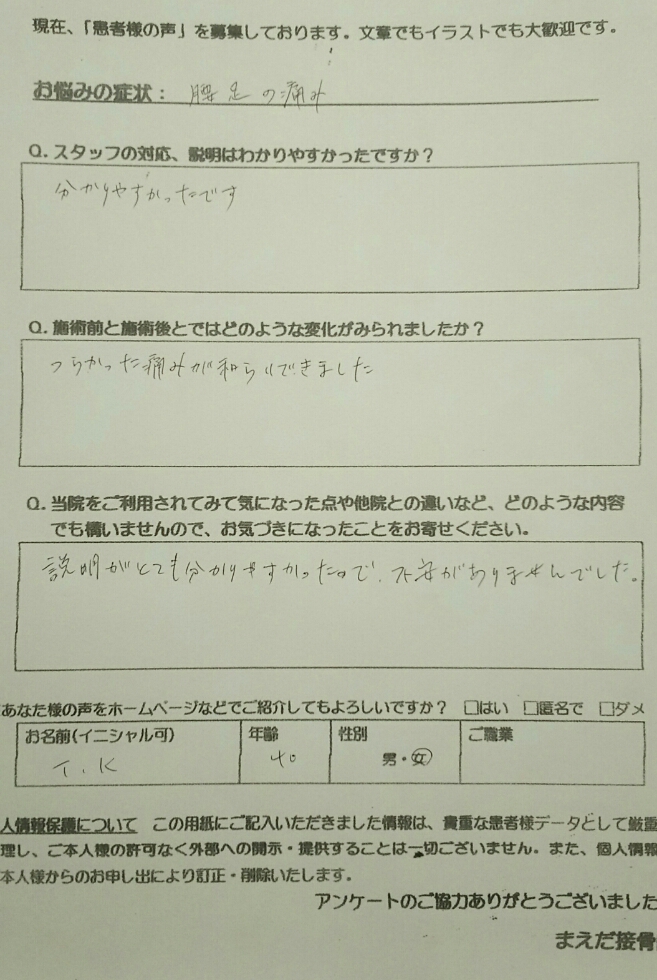 現在、「患者様の声」を募集しております。文章でもイラストでも大歓迎です。
お悩みの症状: 腰足の痛み
Q. スタッフの対応、説明はわかりやすかったですか?
分かりやすかったです
Q. 施術前と施術後とではどのような変化がみられましたか?
つらかった痛みが和らいできました
Q. 当院をご利用されてみて気になった点や他院との違いなど、どのような内容
でも構いませんので、お気づきになったことをお寄せください。
説明がとても分かりやすかったので、不安がありませんでした。
あなた様の声をホームページなどでご紹介してもよろしいですか? □はい □匿名で □ダメ
お名前(イニシャル可) 年齢 性別 ご職業
T.K 40 男・女
人情報保護について この用紙にご記入いただきました情報は、貴重な患者様データとして厳重
理し、ご本人様の許可なく外部への開示・提供することは一切ございません。また、個人情報
本人様からのお申し出により訂正・削除いたします。
アンケートのご協力ありがとうございました
まえだ接骨